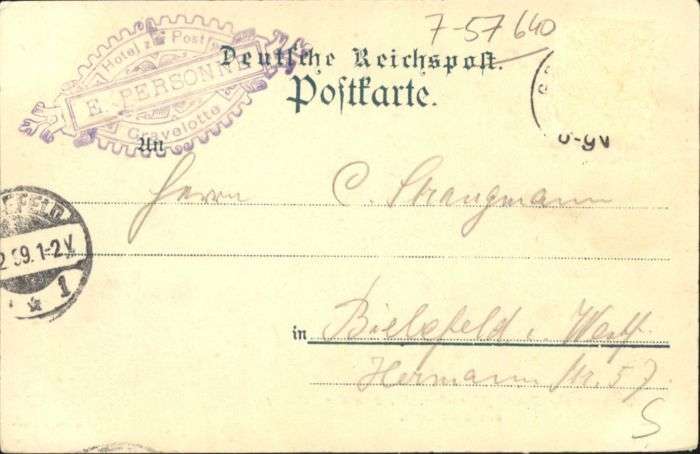 7-57640
Hotel z. Post
E. PERSONNE
Gravelotte
Deutsche Reichspost.
Postkarte.
An
Herrn C. Strangmann
2 99. 1-2V.
1
in Bielefeld i. Westf.
Hermann str. 57
S